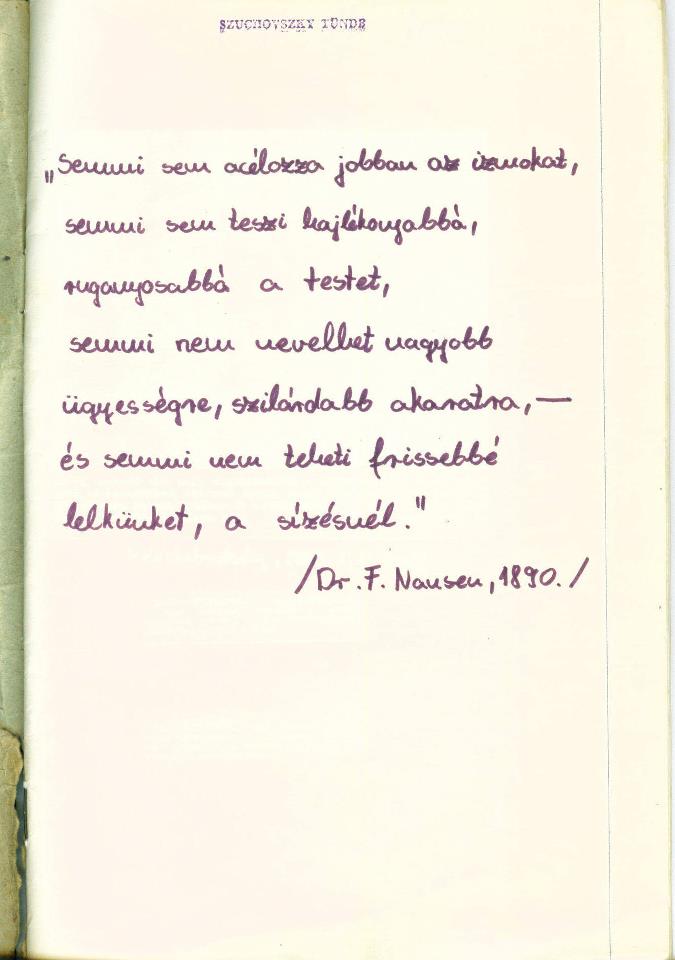 SZUCHOVSZKY TÜNDE
„Semmi sem acélozza jobban az izmokat,
semmi sem teszi hajlékonyabbá,
ruganyosabbá a testet,
semmi nem nevelhet nagyobb
ügyességre, szilárdabb akaratra, —
és semmi nem teheti frissebbé
lelkünket, a sízésnél."
/Dr. F. Nansen, 1890./